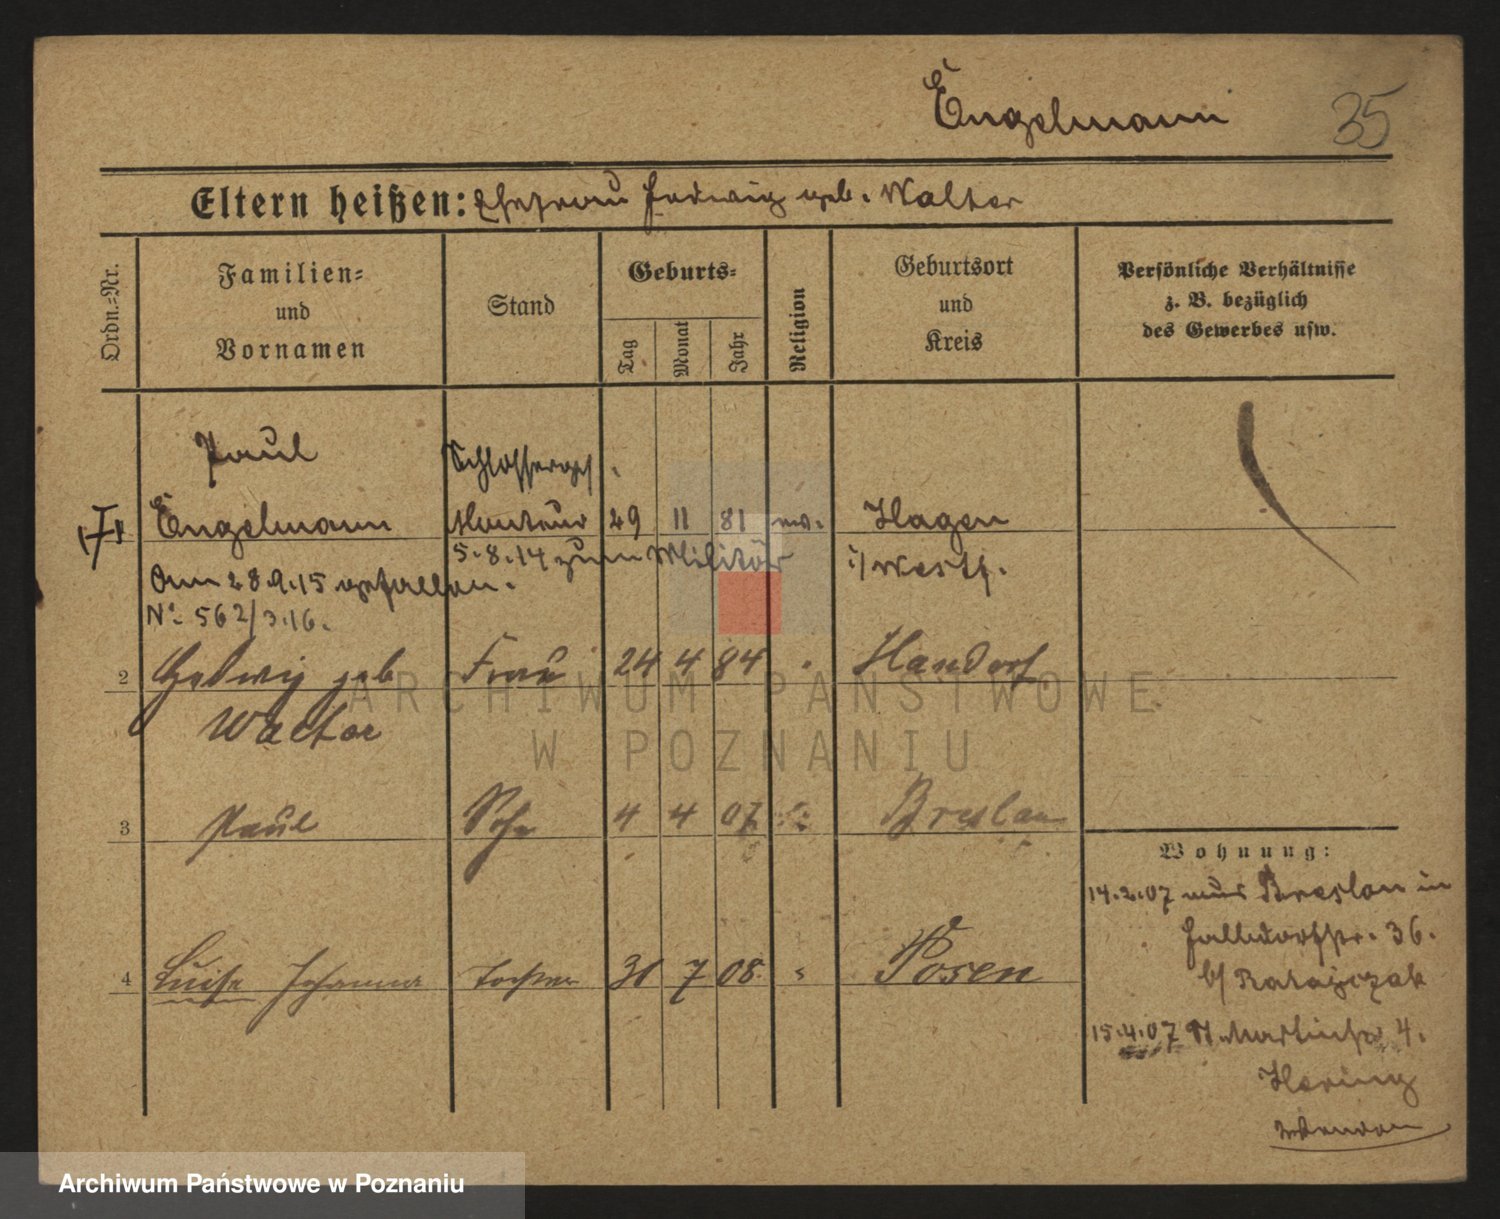 Engelmann 35
Eltern heißen: Ehefrau Hedwig geb. Walter
Ordn.-Nr.
Familien-
und
Vornamen
Stand
Geburts-
Tag
Monat
Jahr
Religion
Geburtsort
und
Kreis
Persönliche Verhältnisse
z. B. bezüglich
des Gewerbes usw.
Paul Schlosserges.
Engelmann Monteur 29 11 81 ev. Hagen
5.8.14 zum Militär i/ Westf.
Am 28.9.15 gefallen.
No. 562/3.16.
2 Hedwig geb Frau 24 4 84 Handorf
Walter
3 Paul Sohn 4 4 07 Breslau
4 Luise Johanna Tochter 31 7 08 Posen
Wohnung:
14.2.07 aus Breslau in
36.
b/ Ratajczak
15.4.07 St. Martinstr 4.
Hering
wenden
ARCHIWUM PAŃSTWOWE
W POZNANIU
Archiwum Państwowe w Poznaniu